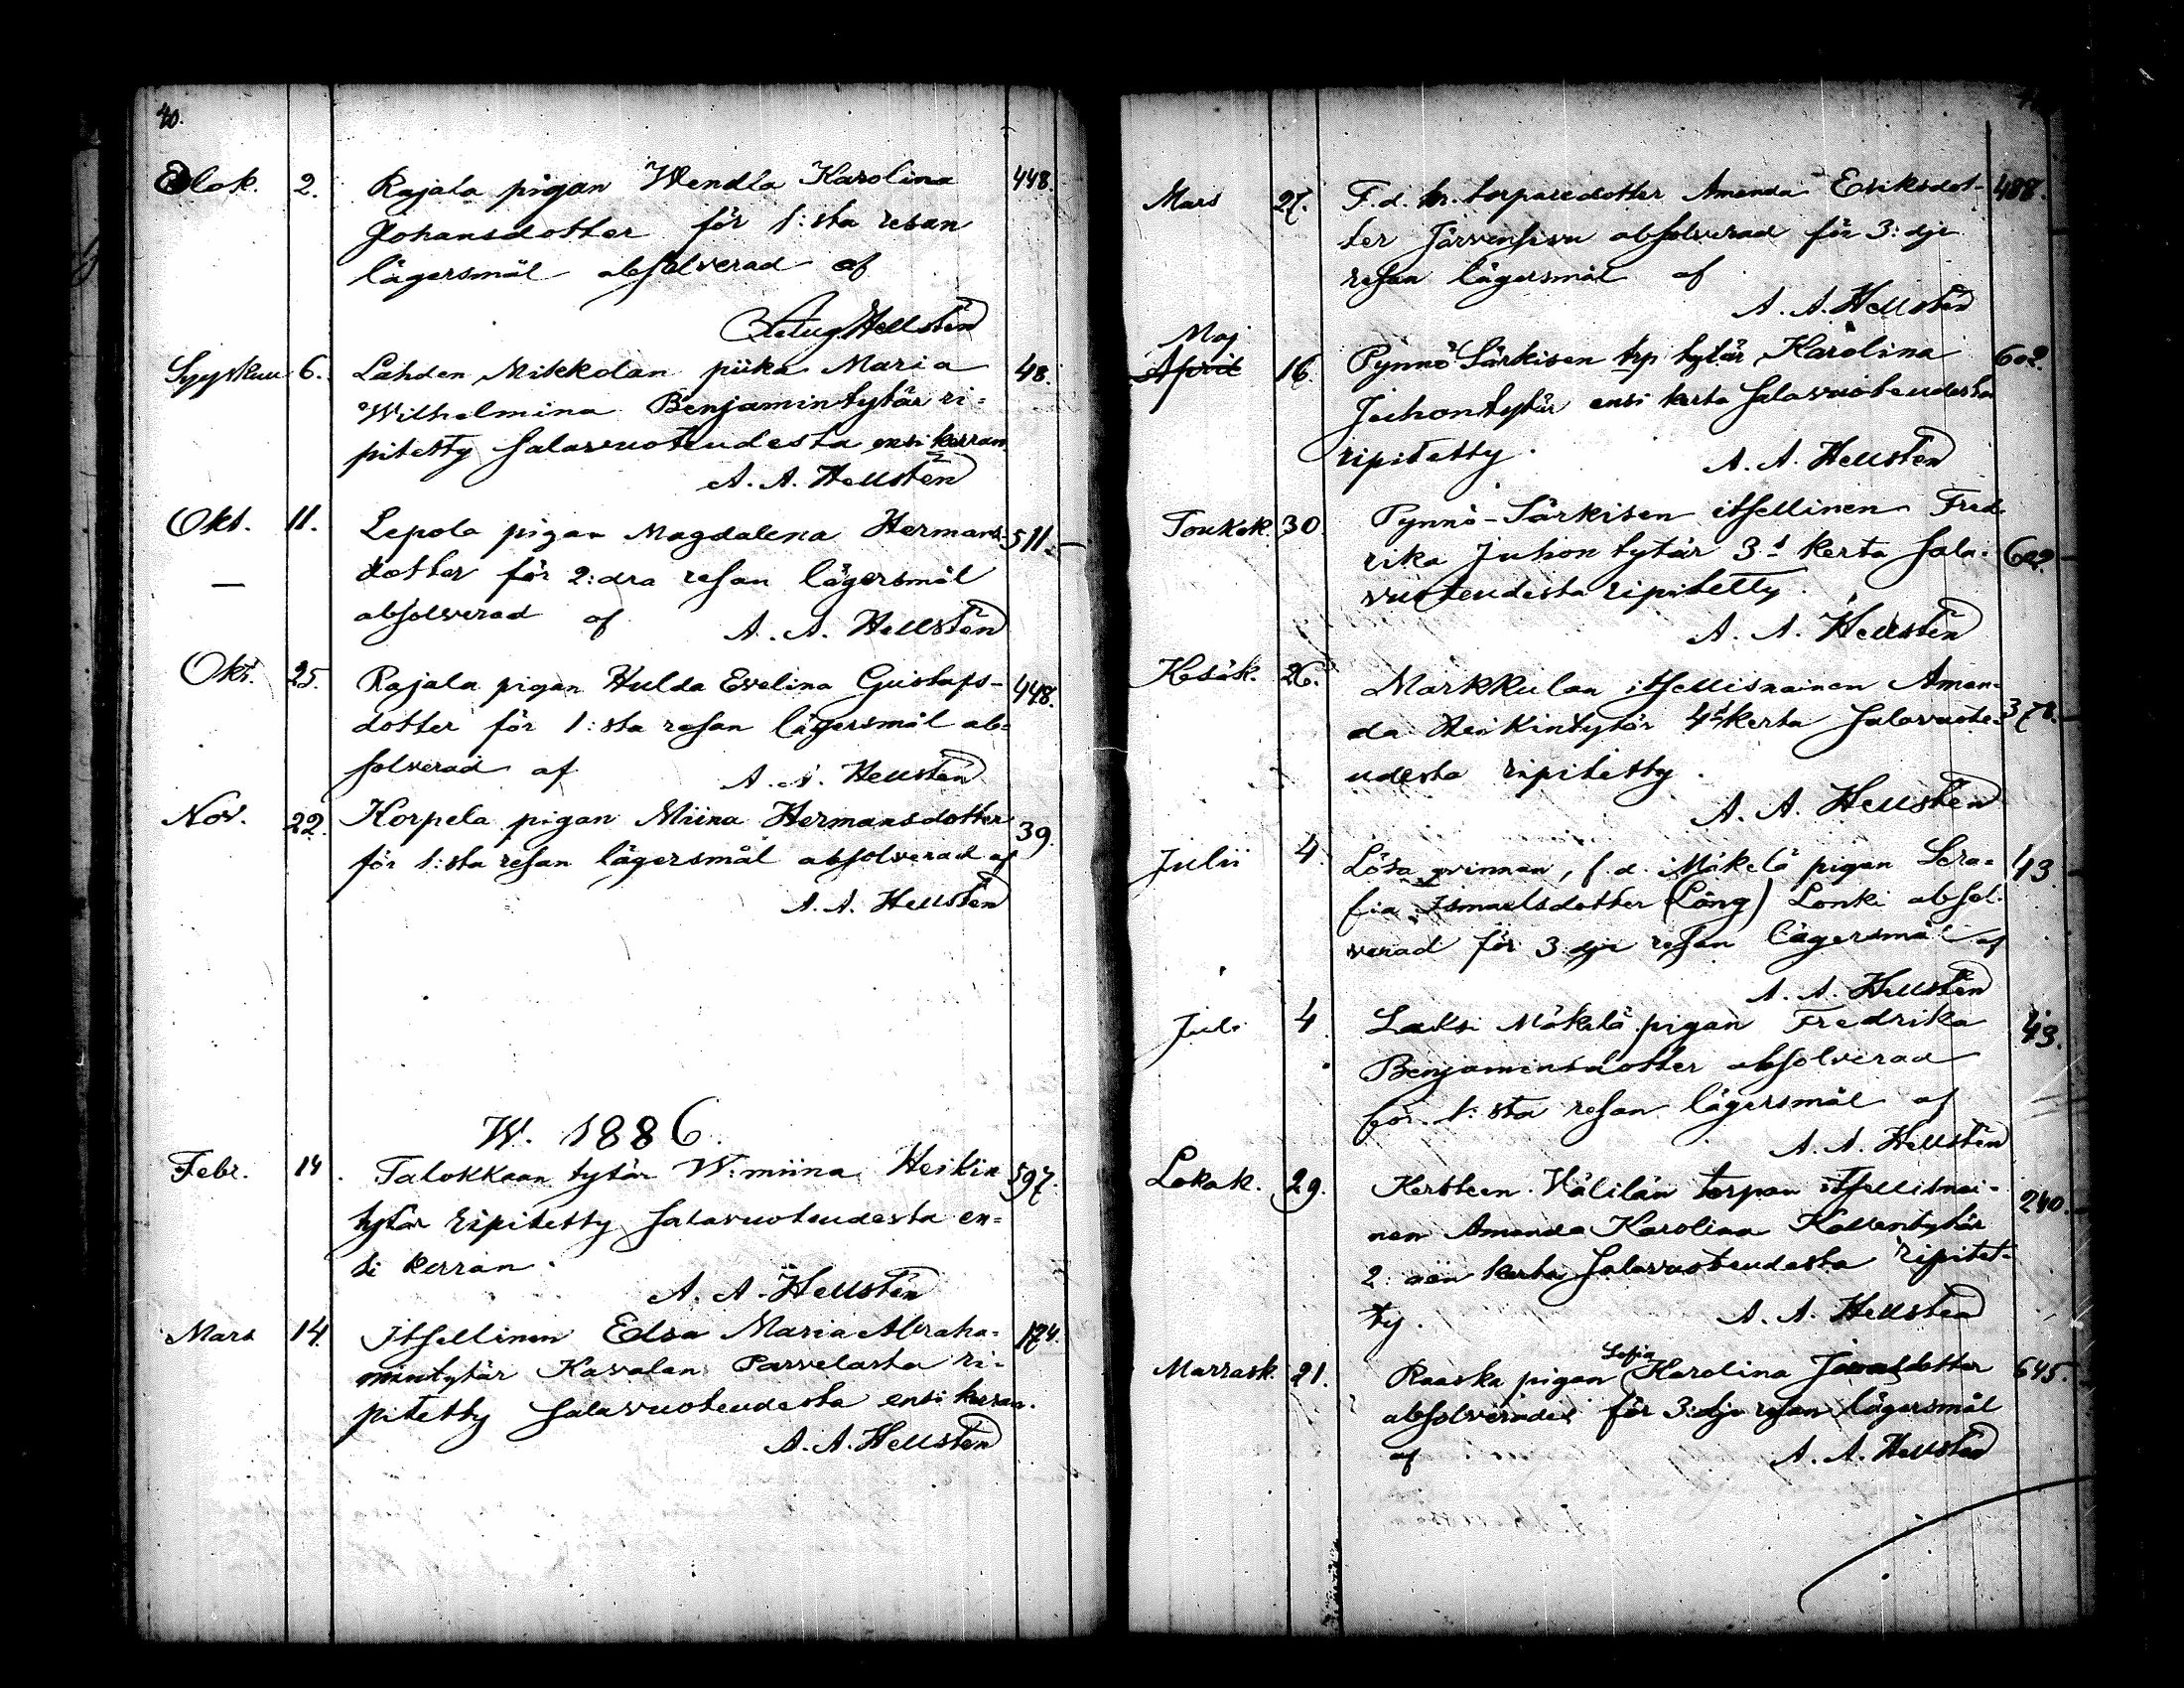 40.
Elok. 2. Rajala pigan Wendla Karolina 448.
Johansdotter för 1:sta resan
lägersmål absolverad af
Aug. Hellstén
Syyskuu 6. Lahden Mikkolan piika Maria 48.
Wilhelmina Benjamintytär ri=
pitetty salavuoteudesta ensi kerran
A. A. Hellstén
Okt. 11. Lepola pigan Magdalena Hermans- 511.
dotter för 2:dra resan lägersmål
absolverad af A. A. Hellstén
Okt. 25. Rajala pigan Hulda Evelina Gustafs- 448.
dotter för 1:sta resan lägersmål ab=
solverad af A. A. Hellstén
Nov. 22. Korpela pigan Miina Hermansdotter 39.
för 1:sta resan lägersmål absolverad af
A. A. Hellstén
W. 1886.
Febr. 14. Talokkaan tytär W:miina Heikin 597.
tytär ripitetty salavuoteudesta en=
si kerran.
A. A. Hellstén
Mars 14. Itsellinen Edsa Maria Abraha= 174.
mintytär Kavalan Parvelasta ri=
pitetty salavuoteudesta ensi kerran.
A. A. Hellstén
Mars 27. F.d. torparedotter Amanda Eriksdot- 488.
ter Järvensivu absolverad för 3:dje
resan lägersmål af
A. A. Hellstén
Maj
April 16. Pynnö Särkisen trp tytär Karolina 602.
Juhontytär ensi kerta salavuoteudesta
ripitetty. A. A. Hellstén
Toukok. 30. Pynnö-Särkisen itsellinen Fred
rika Juhontytär 3:s kerta sala- 602.
vuoteudesta ripitetty.
A. A. Hellstén
Kesäk. 26. Markkulan itsellisnainen Aman-
da Heikintytär 4:s kerta salavuote- 378.
udesta ripitetty.
A. A. Hellstén
Julii 4. Lösa qvinnan, f.d. Mäkelä pigan Sera= 43.
fia Ismaelsdotter (Lång) Lonki absol-
verad för 3:dje resan lägersmål af
A. A. Hellstén
Juli 4. Mäkelä pigan Fredrika 43.
Benjaminsdotter absolverad
för 1:sta resan lägersmål af
A. A. Hellstén
Lokak. 29. Kersteen Välilän torpan itsellisnai- 240.
nen Amanda Karolina Kallentytär
2:nen kerta salavuoteudesta ripitet-
ty. A. A. Hellstén
Sofia
Marrask. 21. Raaska pigan Karolina 645.
absolverades för 3:dje resan lägersmål
af A. A. Hellstén